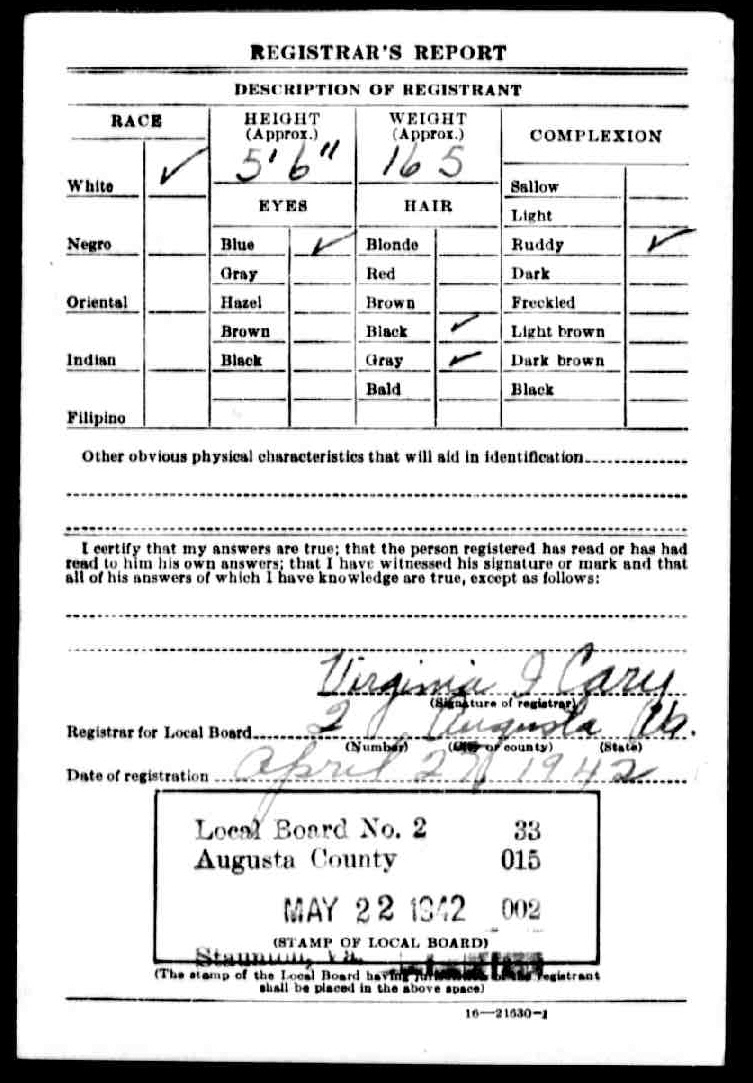 REGISTRAR'S REPORT
DESCRIPTION OF REGISTRANT
RACE HEIGHT (Approx.) WEIGHT (Approx.) COMPLEXION
5' 6" 165
White ✓ Sallow
EYES HAIR Light
Negro Blue ✓ Blonde Ruddy ✓
Gray Red Dark
Oriental Hazel Brown Freckled
Brown Black ✓ Light brown
Indian Black Gray ✓ Dark brown
Bald Black
Filipino
Other obvious physical characteristics that will aid in identification
I certify that my answers are true; that the person registered has read or has had
read to him his own answers; that I have witnessed his signature or mark and that
all of his answers of which I have knowledge are true, except as follows:
Virginia I Cary
(Signature of registrar)
Registrar for Local Board 2 Augusta Va.
(Number) (City or county) (State)
Date of registration April 27 1942
Local Board No. 2 33
Augusta County 015
MAY 22 1942 002
(STAMP OF LOCAL BOARD)
Staunton, Va.
(The stamp of the Local Board having jurisdiction of the registrant
shall be placed in the above space)
16—21630-1